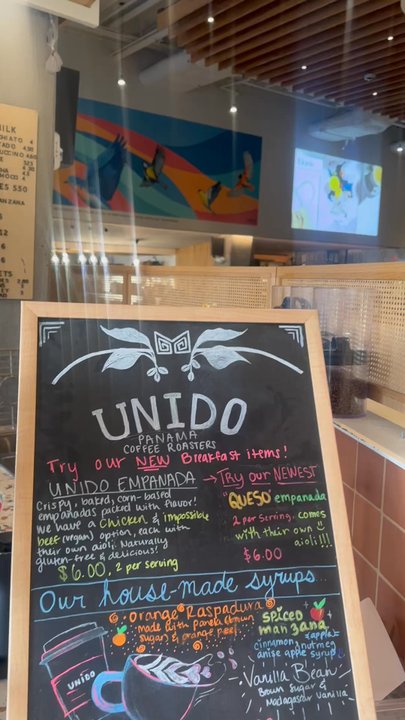 UNIDO
PANAMA
COFFEE ROASTERS
Try our NEW Breakfast items!
UNIDO EMPANADA
Crispy, baked, corn-based
empañadas packed with flavor!
We have a chicken & impossible
beef (vegan) option, each with
their own aioli. Naturally
gluten-free & delicious!
$6.00, 2 per serving
→ Try our NEWEST
"QUESO" empanada
2 per serving, comes
with their own
aioli!!!
$6.00
Our house-made syrups...
Orange Raspadura
made with panela (brown
sugar) & orange peel
spiced
manzana
apple
cinnamon, nutmeg
anise apple syrup
Vanilla Bean
Brown Sugar &
Madagascar Vanilla
UNIDO
MILK
5.50